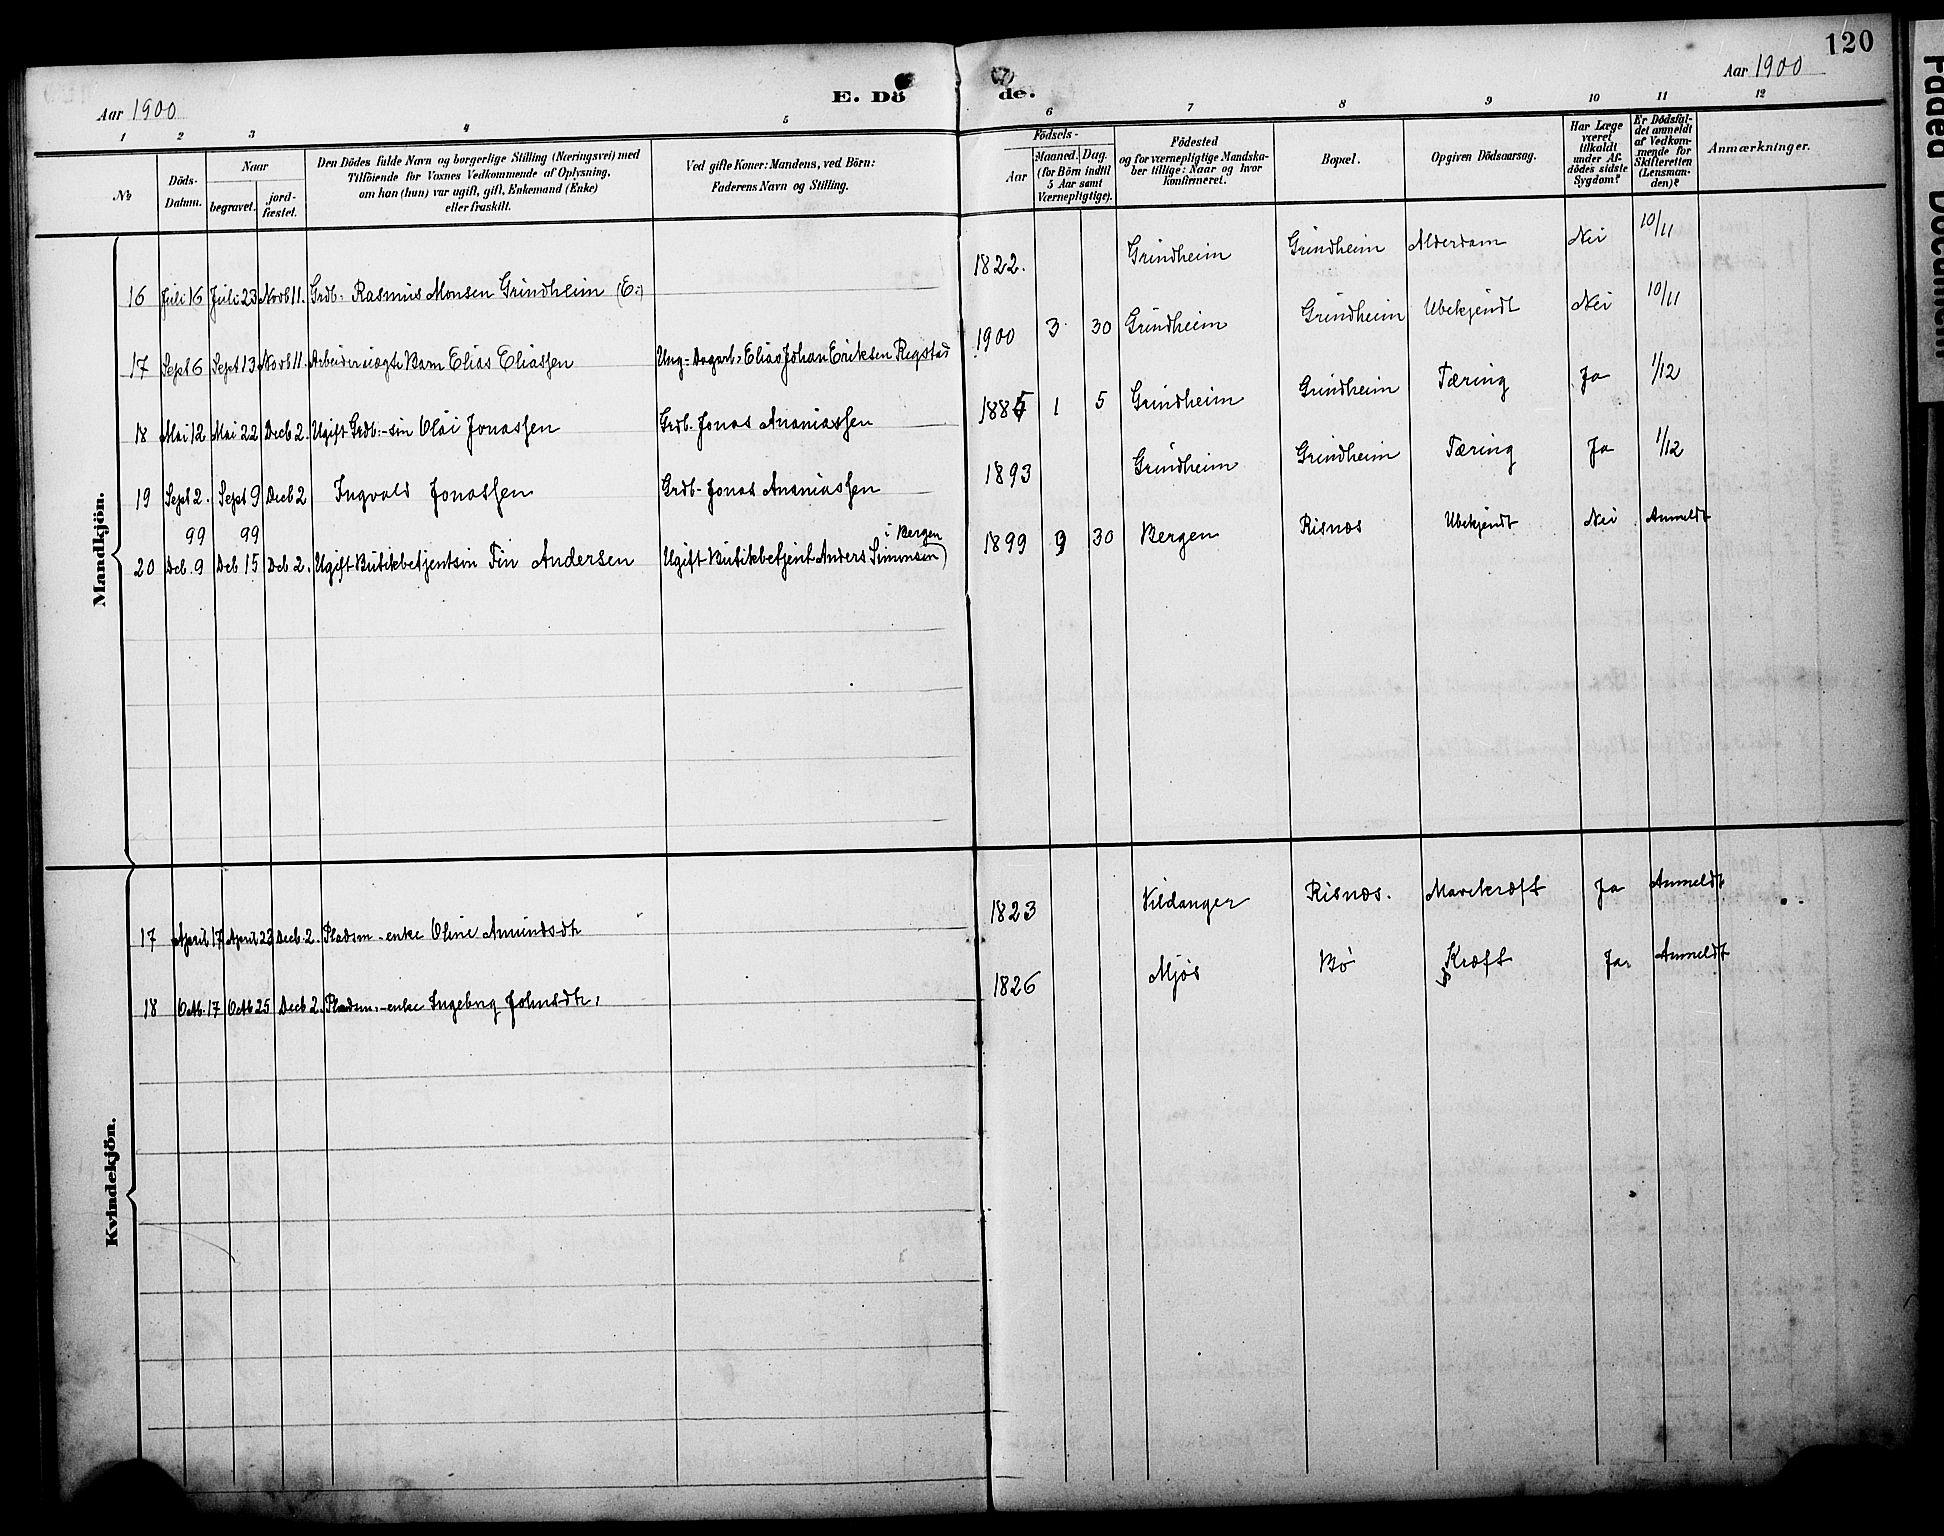 120
Aar 1900
Aar 1900
E. Dö de.
1 2 3 4 5 6 7 8 9 10 11 12
№
Döds-Datum.
Naar
begravet.
jord-fæstet.
Den Dödes fulde Navn og borgerlige Stilling (Næringsvei) med
Tilföiende for Voxnes Vedkommende af Oplysning,
om han (hun) var ugift, gift, Enkemand (Enke)
eller fraskilt.
Ved gifte Koner: Mandens, ved Börn:
Faderens Navn og Stilling.
Födsels-
Aar
Maaned. Dag.
(for Börn indtil
5 Aar samt
Værnepligtige).
Födested
og for værnepligtige Mandska-
ber tillige: Naar og hvor
konfirmeret.
Bopæl.
Opgiven Dödsaarsag.
Har Læge
været
tilkaldt
under Af-
dödes sidste
Sygdom?
Er Dödsfal-
det anmeldt
af Vedkom-
mende for
Skifteretten
(Lensman-
den)?
Anmærkninger.
Mandkjön.
16 Juli 16 Juli 23 Novb 11. Grdb. Rasmus Monsen Grindheim (E.) 1822. Grindheim Grindheim Alderdom Nei 10/11
17 Sept 6 Sept 13 Novb 11. Arbeider uægte Barn Elias Eliassen Ung- Dagarb- Elias Johan Eriksen Regstad 1900 3 30 Grindheim Grindheim Ubekjendt Nei 10/11
18 Mai 12 Mai 22 Decb 2. Ugift Grdb.-søn Olai Jonassen Grdb. Jonas Ananiassen 1885 1 5 Grindheim Grindheim Tæring Ja 1/12
19 Sept 2. Sept 9 Decb 2 Ingvald Jonassen Grdb- Jonas Ananiassen 1893 Grindheim Grindheim Tæring Ja 1/12
99 99 i Bergen
20 Dcb. 9 Dcb 15 Dcb 2. Ugift Butikbetjentsøn Fin Andersen Ugift Butikbetjent Anders Simonsen) 1899 9 30 Bergen Risnæs Ubekjendt Nei Anmeldt
Kvindekjön.
17 April 17 April 23 Decb. 2. Pladsm-enke Oline Amundsdtr 1823 Vildanger Risnæs. Mavekræft Ja Anmeldt
18 Octb. 17 Octb 25 Decb 2. Pladsm.-enke Ingeborg Johnsdtr. 1826 Mjøs Bø Kræft Ja. Anmeldt
Faded Document